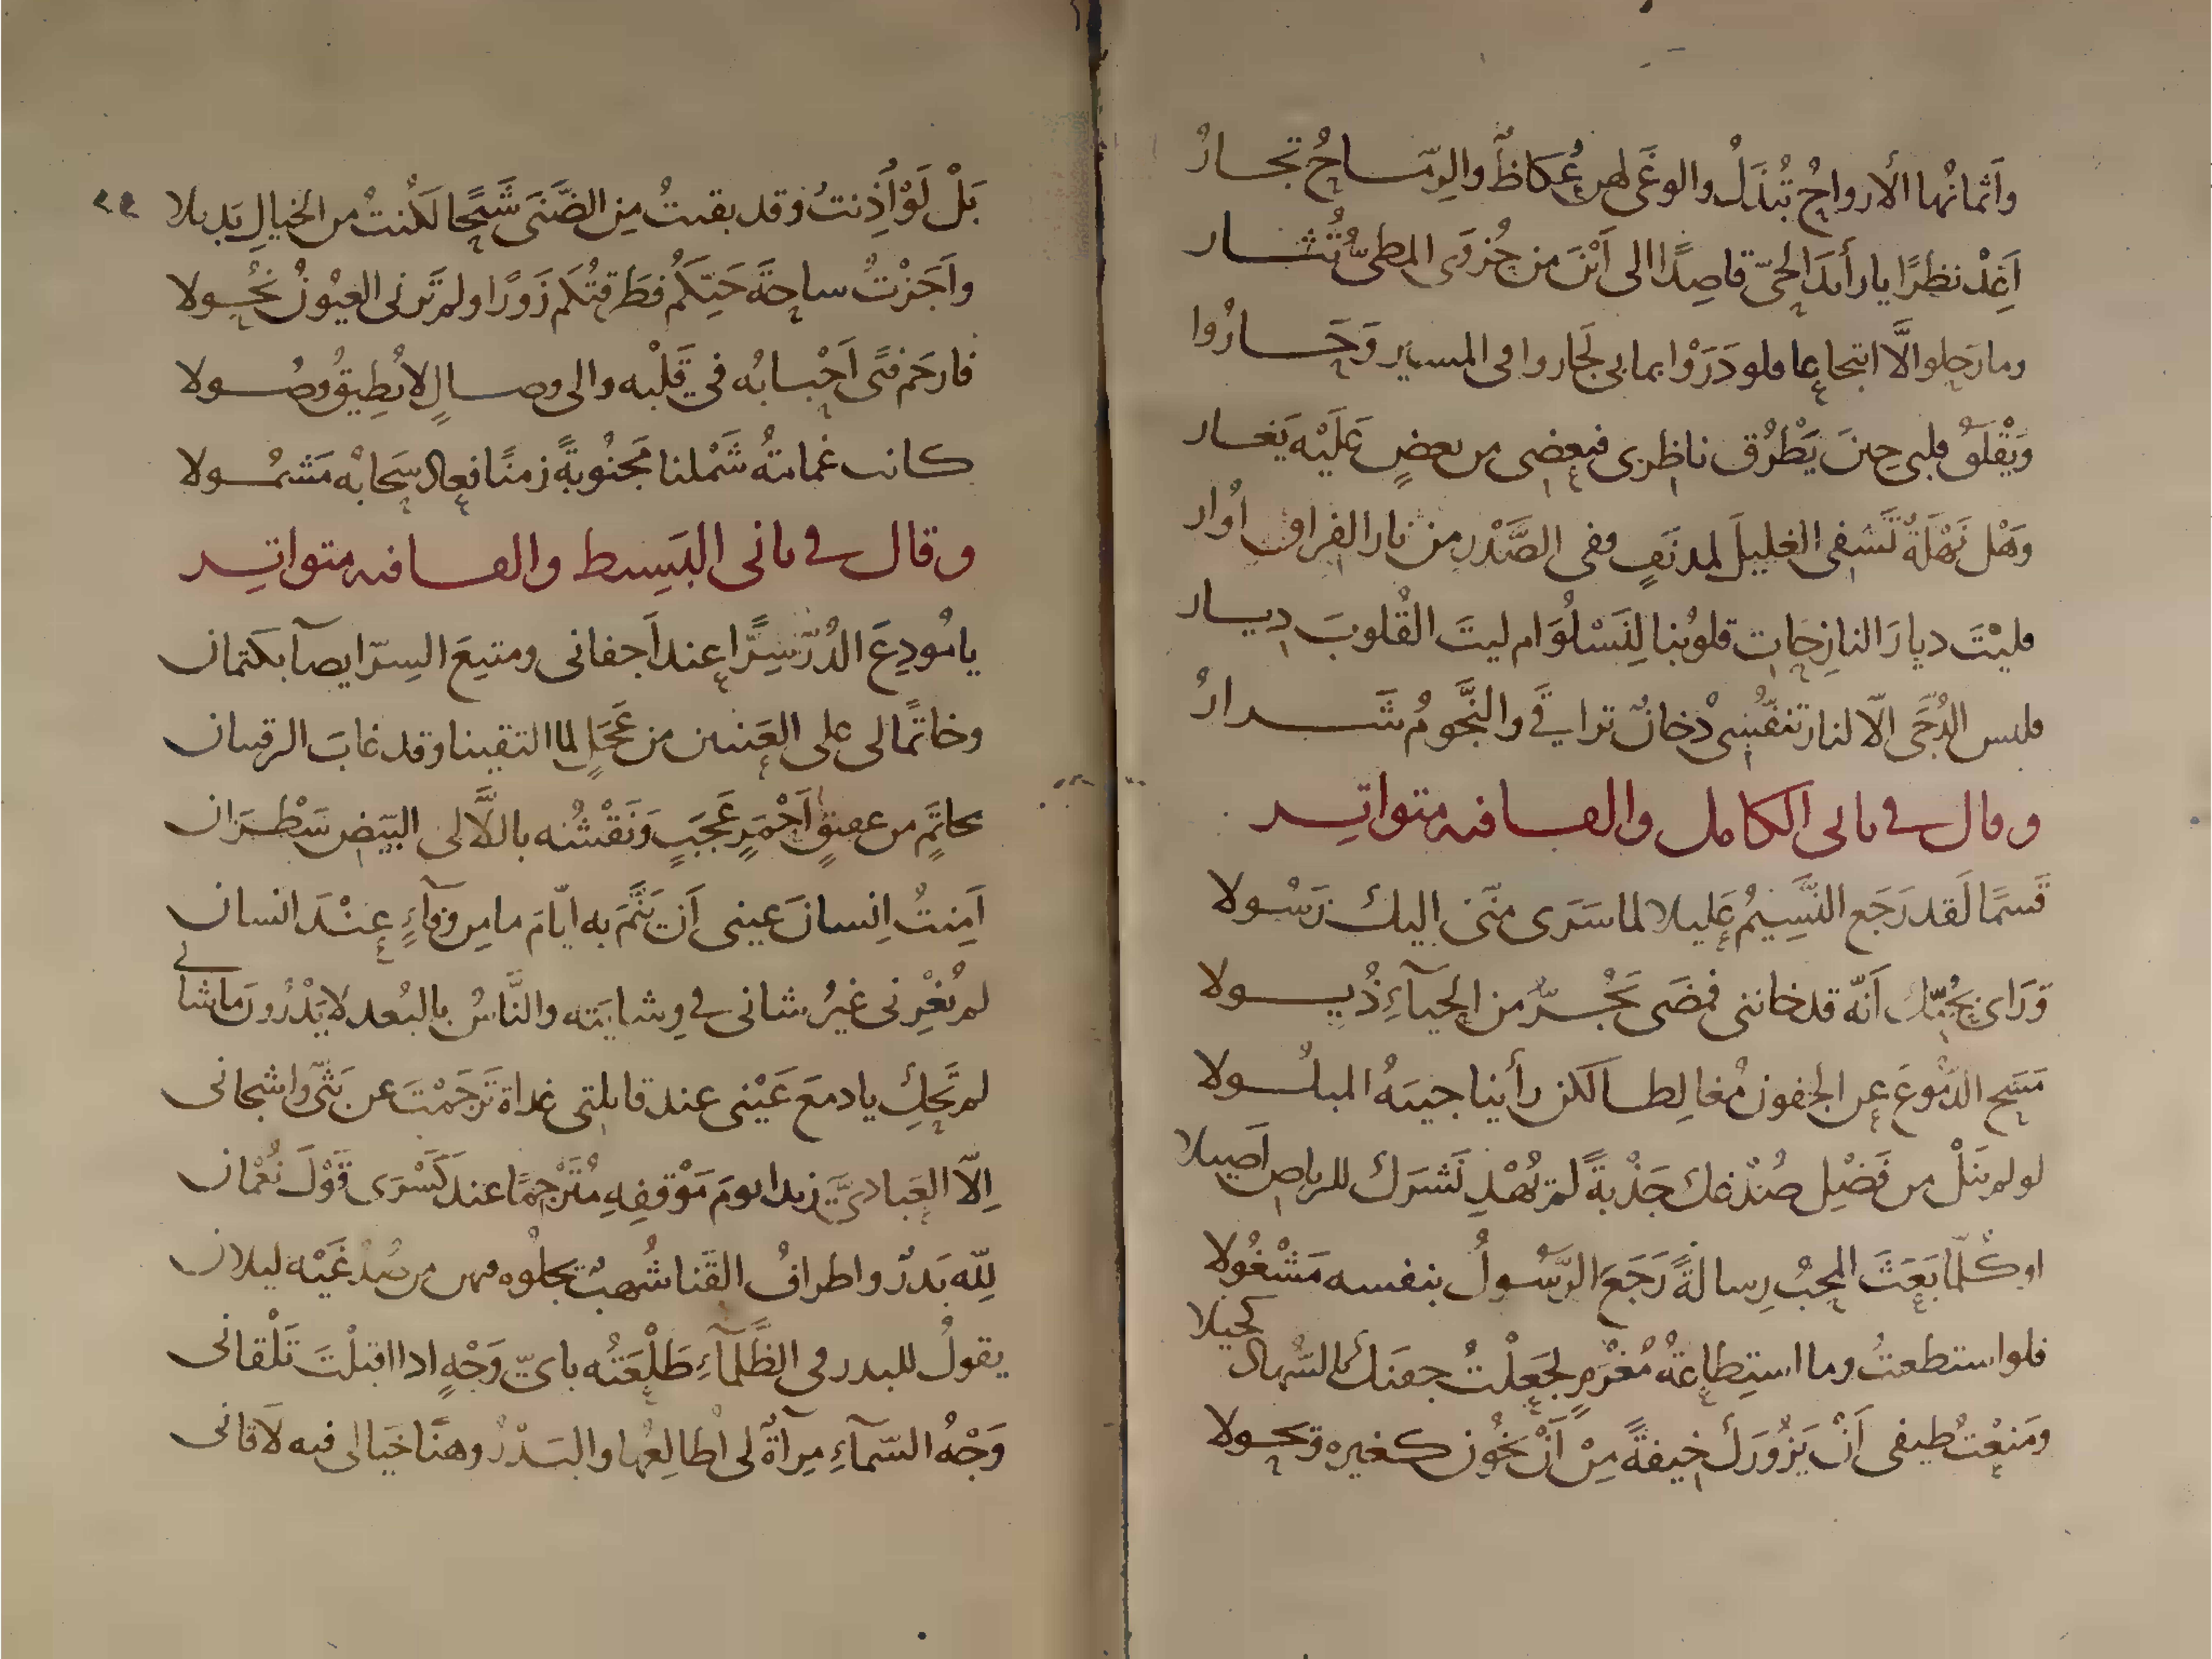 وأثمانُها الأرواحُ تُبْذَلُ والوغَى لهن عُكاظٌ والرِّمَاحُ تجارُ
أَعِدْ نظرًا يا رأيدَ الحيّ قاصدًا الى أَيْنَ من حُزوَى المطيُّ تُثار
وما رَحلوا الَّا انتجاعا فلو دَرَوْا بما بي لَجاروا في المسير وَحَارُوا
وَيَقْلَقُ قلبي حينَ يَطْرُق ناظري فبعضي من بعضٍ عَلَيْه يَغار
وَهَل نَهْلَةٌ تَشفي الغليلَ لمدنَفٍ وفي الصَّدْرِ من نار الفراق أُوار
فليْتَ ديارَ النازِحَاتِ قلوبُنا لِنَسْلُوَ ام ليتَ القُلوبَ ديار
فليس الدُجَى الّا لنار تنفّسي دُخانٌ تراقى والنَّجومُ شَرارُ
وقال في ثاني الكامل والقافيه متواتر
قَسمًا لَقد رَجَع النَّسِيمُ عَليلا لما سَرَى منّى اليك رَسُولا
وَرَاى بحُبّك أَنّه قد خانني فمضَى يَجُرُّ من الحيآءِ ذُيولا
مَسَح الدُّموعَ عن الجفون مُغالِطا لكن رأينا جيبهُ المبلُولا
لو لم ينَلْ من فَضْلِ صُدْغك جَذْبةً لم تُهْدِ نَشرَك للرياض اصيلا
اوكُلّما بَعَثَ المحبُ رِسالةً رَجَعَ الرَّسُولُ بنفسه مَشْغُولا
فلو استطعتُ وما استِطاعةُ مُغْرَمٍ لجعلْتُ جفنَك بالسُّهادِ كحيلا
ومَنعْتُ طيفى أَنْ يَزُورَك خيفةً مِنْ أَنْ يَخُون كغيره ويَحولا
بَلْ لَوْ أَذِنتُ وقد بقيتُ مِن الضَّنَى شَبَحًا لكُنتُ من الخيالِ بَديلا
واَجَزْتُ ساحةَ حَيّكُم فطَرقتُكم زَورًا ولم تَرنى العيُونُ نحُولا
فارحَم فتًى اَحْبابُه في قَلْبه والى وصالٍ لا يُطِيقُ وصُولا
كانت غمامتهُ شَمْلنا مَجنُوبةً زمنًا فعاد سَحابُه مَشمُولا
وقال في ثاني البَسِيط والقافيه متواتر
يا مُودِعَ الدُرّ سِرًّا عند اَجفانى ومتبِعَ السِرّ ايصآ بكتمان
وخاتمًا لى على العَينين من عَجَلٍ لما التقينا وقد غابَ الرقيبان
بخاتمٍ من عقيقٍ اَحْمَرٍ عَجَبٍ وَنَقْشُه باللآَّلى البيَض سَطْرَان
اَمِنتُ اِنسانَ عينى اَن يَنُمَّ به ايّامَ ما مِن وفآءٍ عِنْدَ انسان
لم يُغْرِنى غيرُ شانى في وِشايَته والنَّاسُ بالبُعد لا يَدْرُونَ ما شانى
لم تَحْكِ يا دمعَ عَيْنى عند قابلتي غداة تَرجَمْتَ عن بَثّى واشجانى
اِلّا العَبادىَّ زيدا يومَ مَوْقفِهِ مُتَرْجِمًا عندَ كَسْرَى قَوْلَ نُعْمان
لِلّه بَدرٌ واطرافُ القَنا شُهبٌ يجلُوه فيهن من صُدْغَيْه ليلان
يقولُ للبدر في الظَّلمآءِ طَلْعَتُه باىّ وَجْهٍ اذا اقبلْتَ تَلْقانى
وَجْهُ السّمآءِ مِرآةٌ لى اُطالِعُها والبَدْرُ وهنًا خيَالى فيه لَاقانى